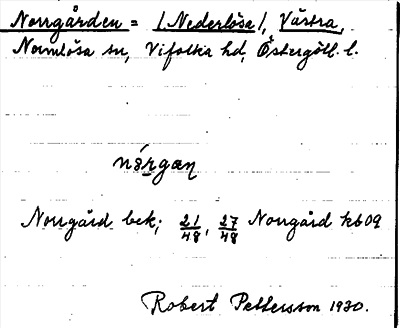 Norrgården = /.Nederlösa/, Västra,
Normlösa sn, Vifolka hd, Östergötl. l.
nó̱rgæn
Norrgård bek; 21/48, 27/48 Norrgård kb 09
Robert Pettersson 1930.